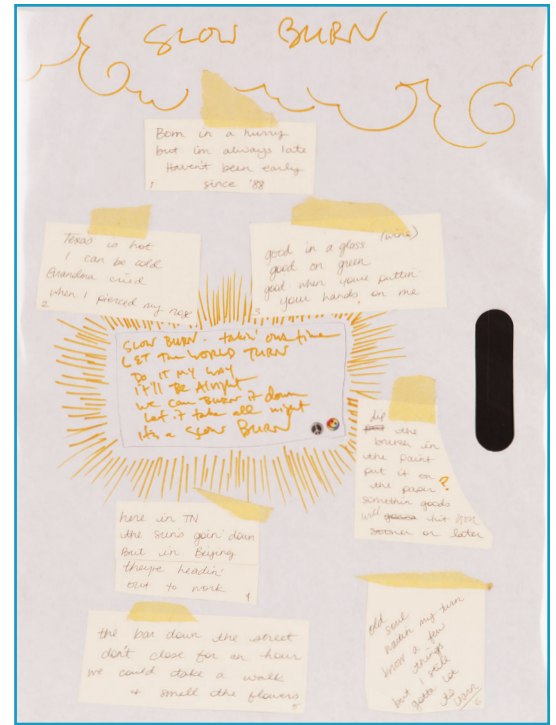 SLOW BURN
Born in a hurry
but i'm always late
Haven't been early
since '88
1
Texas is hot
I can be cold
Grandma cried
when I pierced my nose
2
good in a glass (wine)
good on green
good when you're puttin'
your hands on me
3
SLOW BURN - takin' our time
LET THE WORLD TURN
DO IT MY WAY
it'll Be Alright
we can Burn it down
Let it take all night
its a SLOW BURN
dip
the
brush in
the paint
put it on
the paper ?
somethin goods
will hit
sooner or later
here in TN
the suns goin' down
But in Beijing
they're headin'
out to work
4
the bar down the street
don't close for an hour
we could take a walk
+ smell the flowers
5
old soul
waitin my turn
know a few
things
but I still
gotta lot
to Learn
6